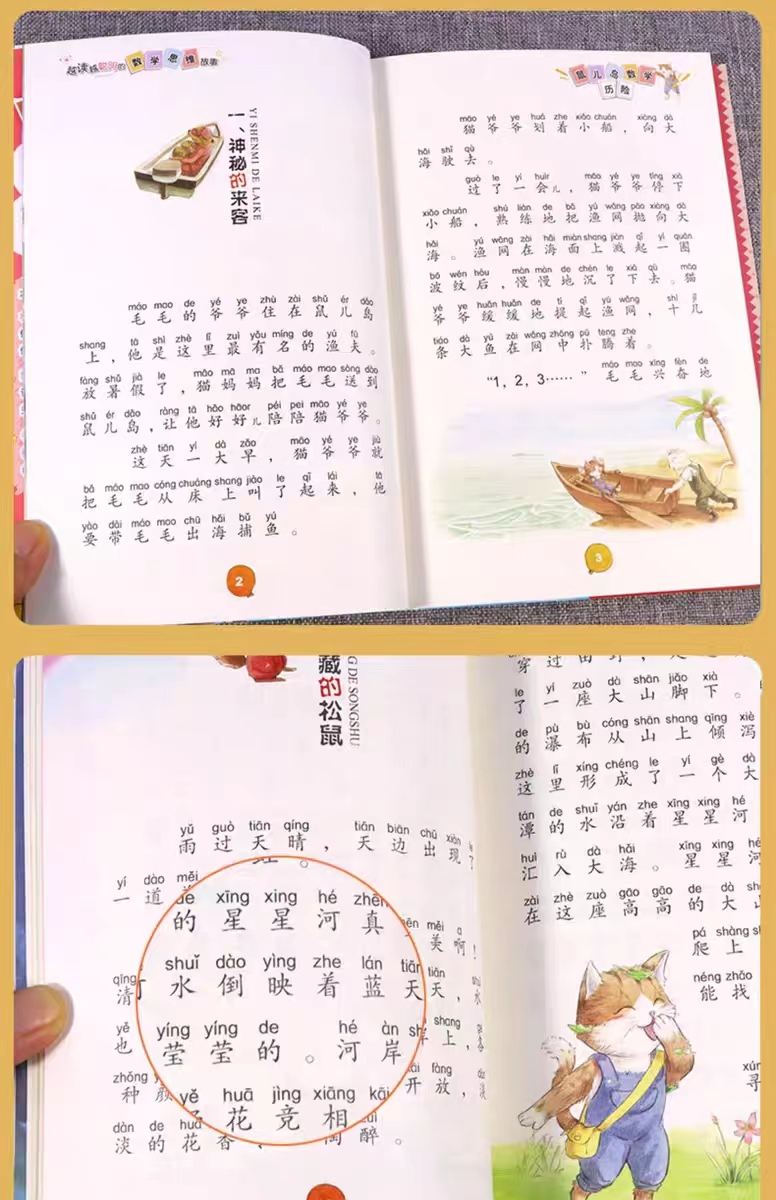 越读越聪明的数学思维故事
一、神秘的来客
YI SHENMI DE LAIKE
máo mao de yé ye zhù zài shǔ ér dǎo
毛毛的爷爷住在鼠儿岛
shang tā shì zhè lǐ zuì yǒu míng de yú fū
上，他是这里最有名的渔夫。
fàng shǔ jià le māo mā ma bǎ máo mao sòng dào
放暑假了，猫妈妈把毛毛送到
shǔ ér dǎo ràng tā hǎo hāor péi pei māo yé ye
鼠儿岛，让他好好儿陪陪猫爷爷。
zhè tiān yí dà zǎo māo yé ye jiù
这天一大早，猫爷爷就
bǎ máo mao cóng chuáng shang jiào le qǐ lái tā
把毛毛从床上叫了起来，他
yào dài máo mao chū hǎi bǔ yú
要带毛毛出海捕鱼。
2
鼠儿岛数学
历险
māo yé ye huá zhe xiǎo chuán xiàng dà
猫爷爷划着小船，向大
hǎi shǐ qù
海驶去。
guò le yí huìr māo yé ye tíng xià
过了一会儿，猫爷爷停下
xiǎo chuán shú liàn de bǎ yú wǎng pāo xiàng dà
小船，熟练地把渔网抛向大
hǎi yú wǎng zài hǎi miàn shang jiàn qǐ yì quān
海。渔网在海面上溅起一圈
bō wén hòu màn màn de chén le xià qù māo
波纹后，慢慢地沉了下去。猫
yé ye huǎn huǎn de tí qǐ yú wǎng shí jǐ
爷爷缓缓地提起渔网，十几
tiáo dà yú zài wǎng zhōng pū teng zhe
条大鱼在网中扑腾着。
máo mao xīng fèn de
“1，2，3……”毛毛兴奋地
3
藏的松鼠
G DE SONGSHU
yǔ guò tiān qíng tiān biān chū xiàn le
雨过天晴，天边出现了
yí dào měi
一道美
de xīng xing hé zhēn
的星星河真
měi a
美啊！
qīng
清
shuǐ dào yìng zhe lán tiān
水倒映着蓝天
天，水
yě
也
yíng yíng de hé àn shang
莹莹的。河岸上，
zhǒng
种颜
yě huā jìng xiāng kāi fàng
花竞相开放，淡
dàn de huā
淡的花香，陶醉。
le yí zuò dà shān jiǎo xià
了一座大山脚下。
de pù bù cóng shān shang qīng xiè
的瀑布从山上倾泻
zhè lǐ xíng chéng le yí gè dà
这里形成了一个大
tán de shuǐ yán zhe xīng xing hé
潭的水沿着星星河
huì rù dà hǎi xīng xing hé
汇入大海。星星河
zài zhè zuò gāo gāo de dà shān
在这座高高的大山
pá shàng
爬上
néng zhǎo
能找
xún
寻